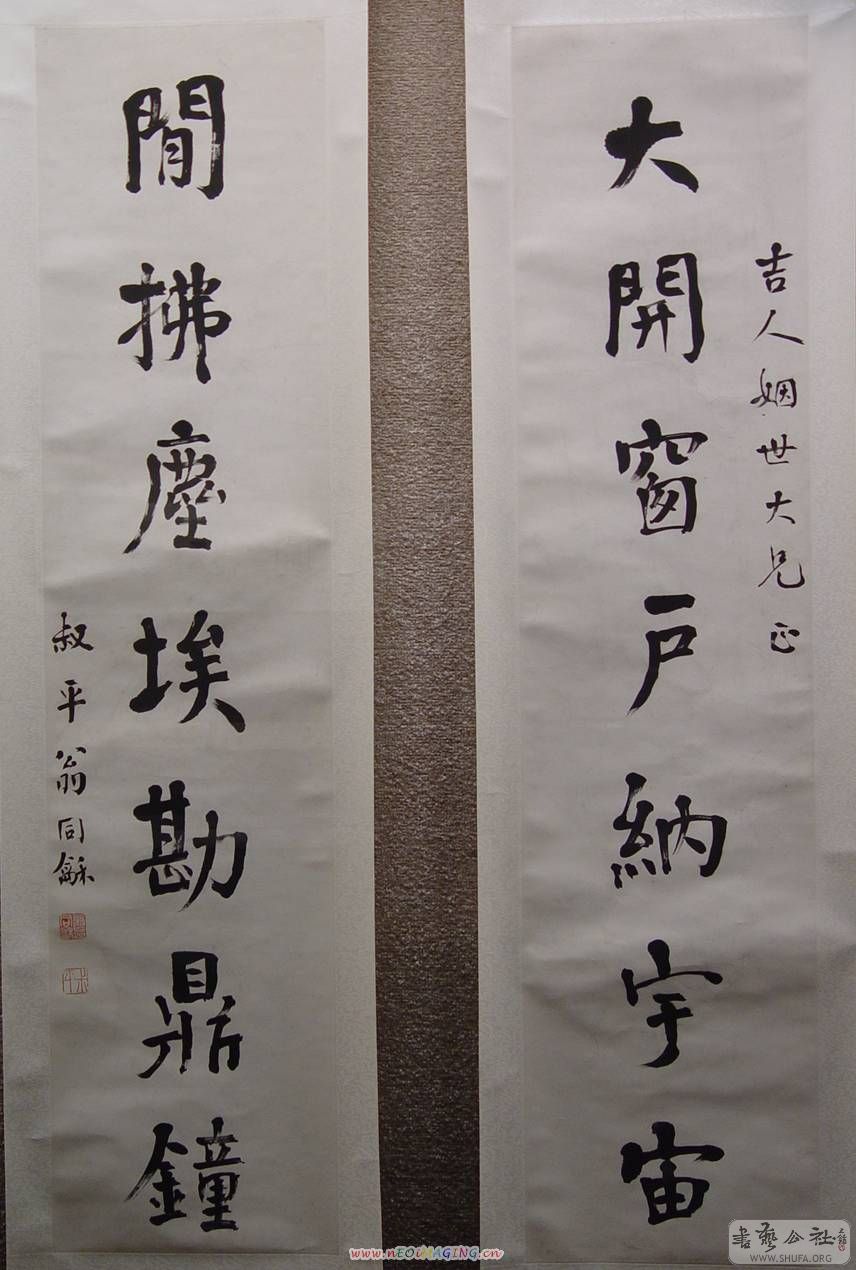 大開窗戶納宇宙
吉人姻世大兄正
閒拂塵埃勘鼎鐘
叔平翁同龢
www.nEOiMAGING.cn
書藝公社
WWW.SHUFA.ORG